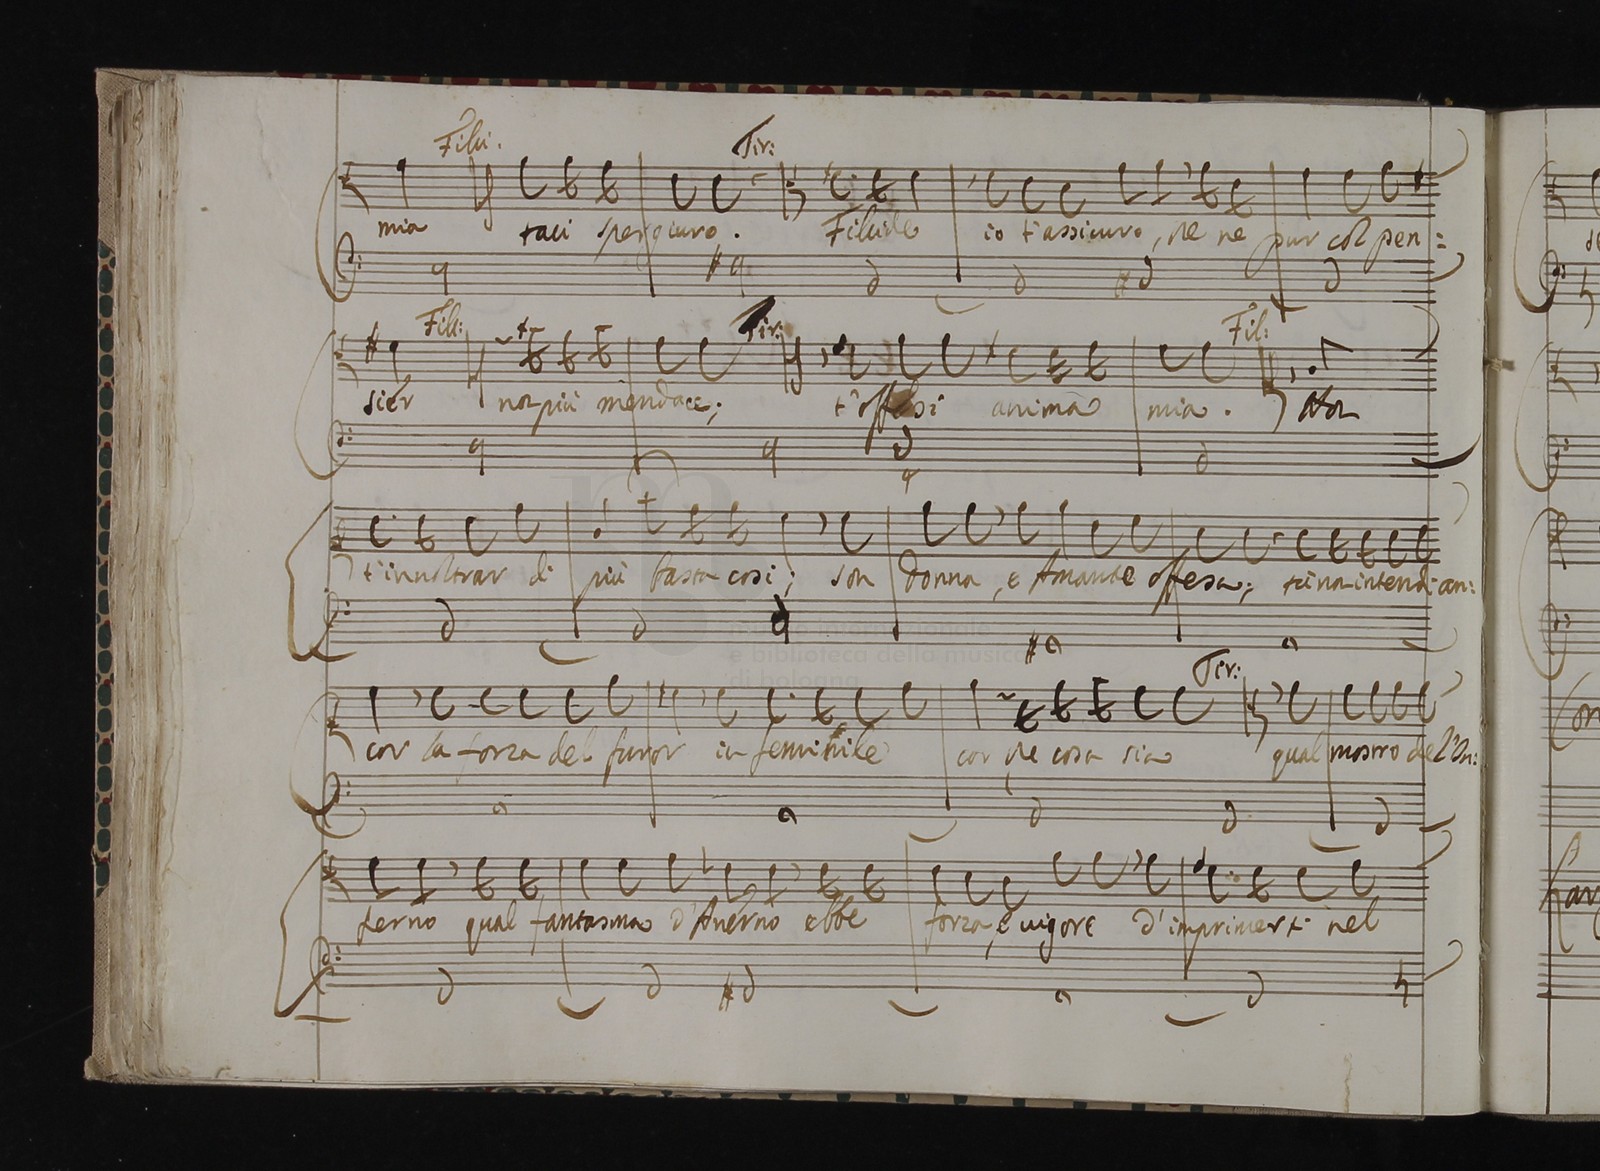 Fili. Tir:
mia taci spergiuro. Filide io t'assicuro, ne ne pur col pen:
Fili: Tir: Fil:
sier non più mendace; t'offesi anima mia. Non
t'innoltrar di più basta così; son donna, e Amante offesa; tu non intendi an:
Tir:
cor la forza del furor in feminile cor che cosa sia qual mostro del'In:
ferno qual fantasma d'Averno ebbe forza, e vigore d'imprimerti nel
museo internazionale
e biblioteca della musica
di bologna